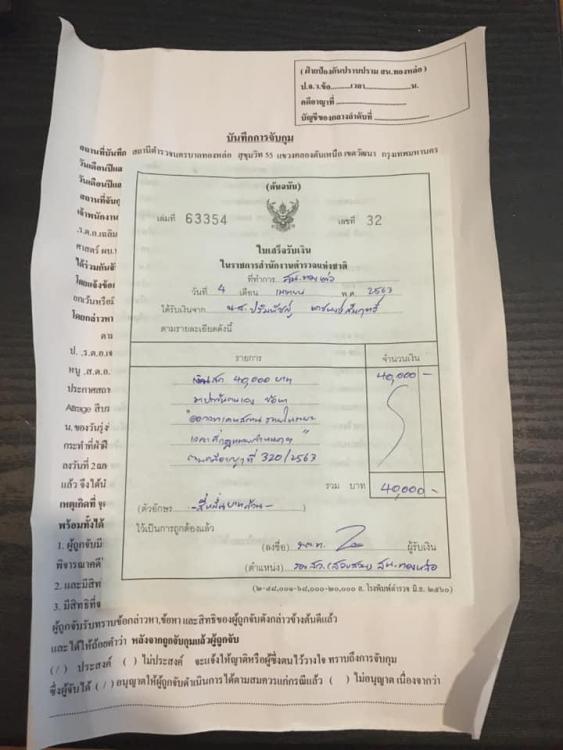 (ฝ่ายป้องกันปราบปราม สน.ทองหล่อ)
ป.จ.ว.ข้อ.........เวลา..............น.
คดีอาญาที่
บัญชีของกลางลำดับที่
บันทึกการจับกุม
สถานที่บันทึก สถานีตำรวจนครบาลทองหล่อ สุขุมวิท 55 แขวงคลองตันเหนือ เขตวัฒนา กรุงเทพมหานคร
วันเดือนปีและ
วันเดือนปีและ
สถานที่จับกุม
เจ้าพนักงาน
ได้ร่วมกันจับ
โดยแจ้งข้อ
โดยกล่าวหา
ตาม
หมู่ ,ส.ต.อ.
ประกาศสถา
Attrage สีบร
น. ของวันรุ่ง
ลงวันที่ 2
แล้ว จึงได้นำ
เหตุเกิดที่
พร้อมทั้งได้
1. ผู้ถูกจับมี
พิจารณาคดี
2. และมีสิท
3. มีสิทธิที่จ
(ต้นฉบับ)
เล่มที่ 63354
เลขที่ 32
ใบเสร็จรับเงิน
ในราชการสำนักงานตำรวจแห่งชาติ
ที่ทำการ สน.ทองหล่อ
วันที่ 4 เดือน เมษายน พ.ศ. 2563
ได้รับเงินจาก น.ส.
ตามรายละเอียดดังนี้
รายการ
จำนวนเงิน
เงินสด 40,000 บาท
40,000 -
"ออกจากเคหสถานภายใน
320/2563
รวม บาท 40,000 -
(ตัวอักษร -สี่หมื่นบาทถ้วน- )
ไว้เป็นการถูกต้องแล้ว
(ลงชื่อ) ผู้รับเงิน
(ตำแหน่ง) รอง สว.(สอบสวน) สน.ทองหล่อ
ผู้ถูกจับรับทราบข้อกล่าวหา,ข้อหา และสิทธิของผู้ถูกจับดังกล่าวข้างต้นดีแล้ว
และได้ให้ถ้อยคำว่า หลังจากถูกจับกุมแล้วผู้ถูกจับ
( / ) ประสงค์ ( ) ไม่ประสงค์ จะแจ้งให้ญาติหรือผู้ซึ่งตนไว้วางใจ ทราบถึงการจับกุม
ซึ่งผู้จับได้ ( / ) อนุญาตให้ผู้ถูกจับดำเนินการได้ตามสมควรแก่กรณีแล้ว ( ) ไม่อนุญาต เนื่องจากว่า